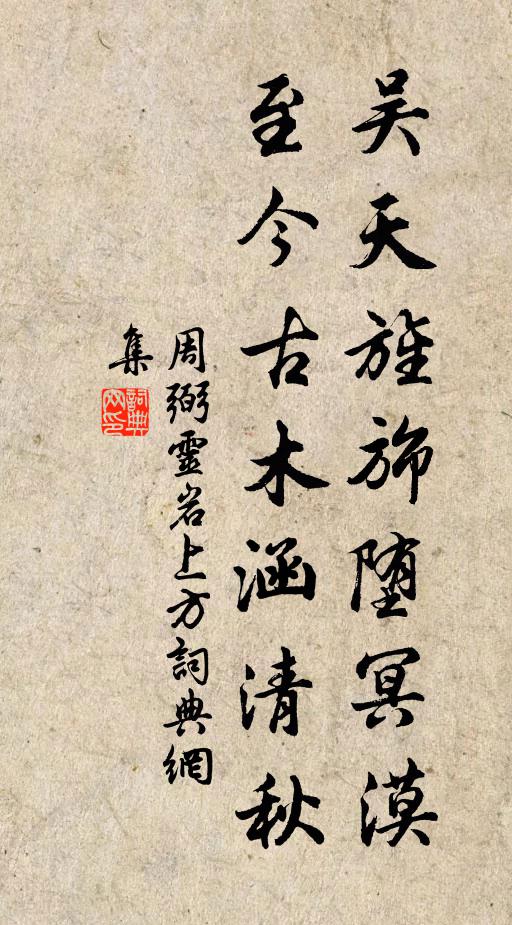 吴天旌旆堕冥漠
至今古木涵清秋
周弼靈岩上方詞典網
集
詞典網印